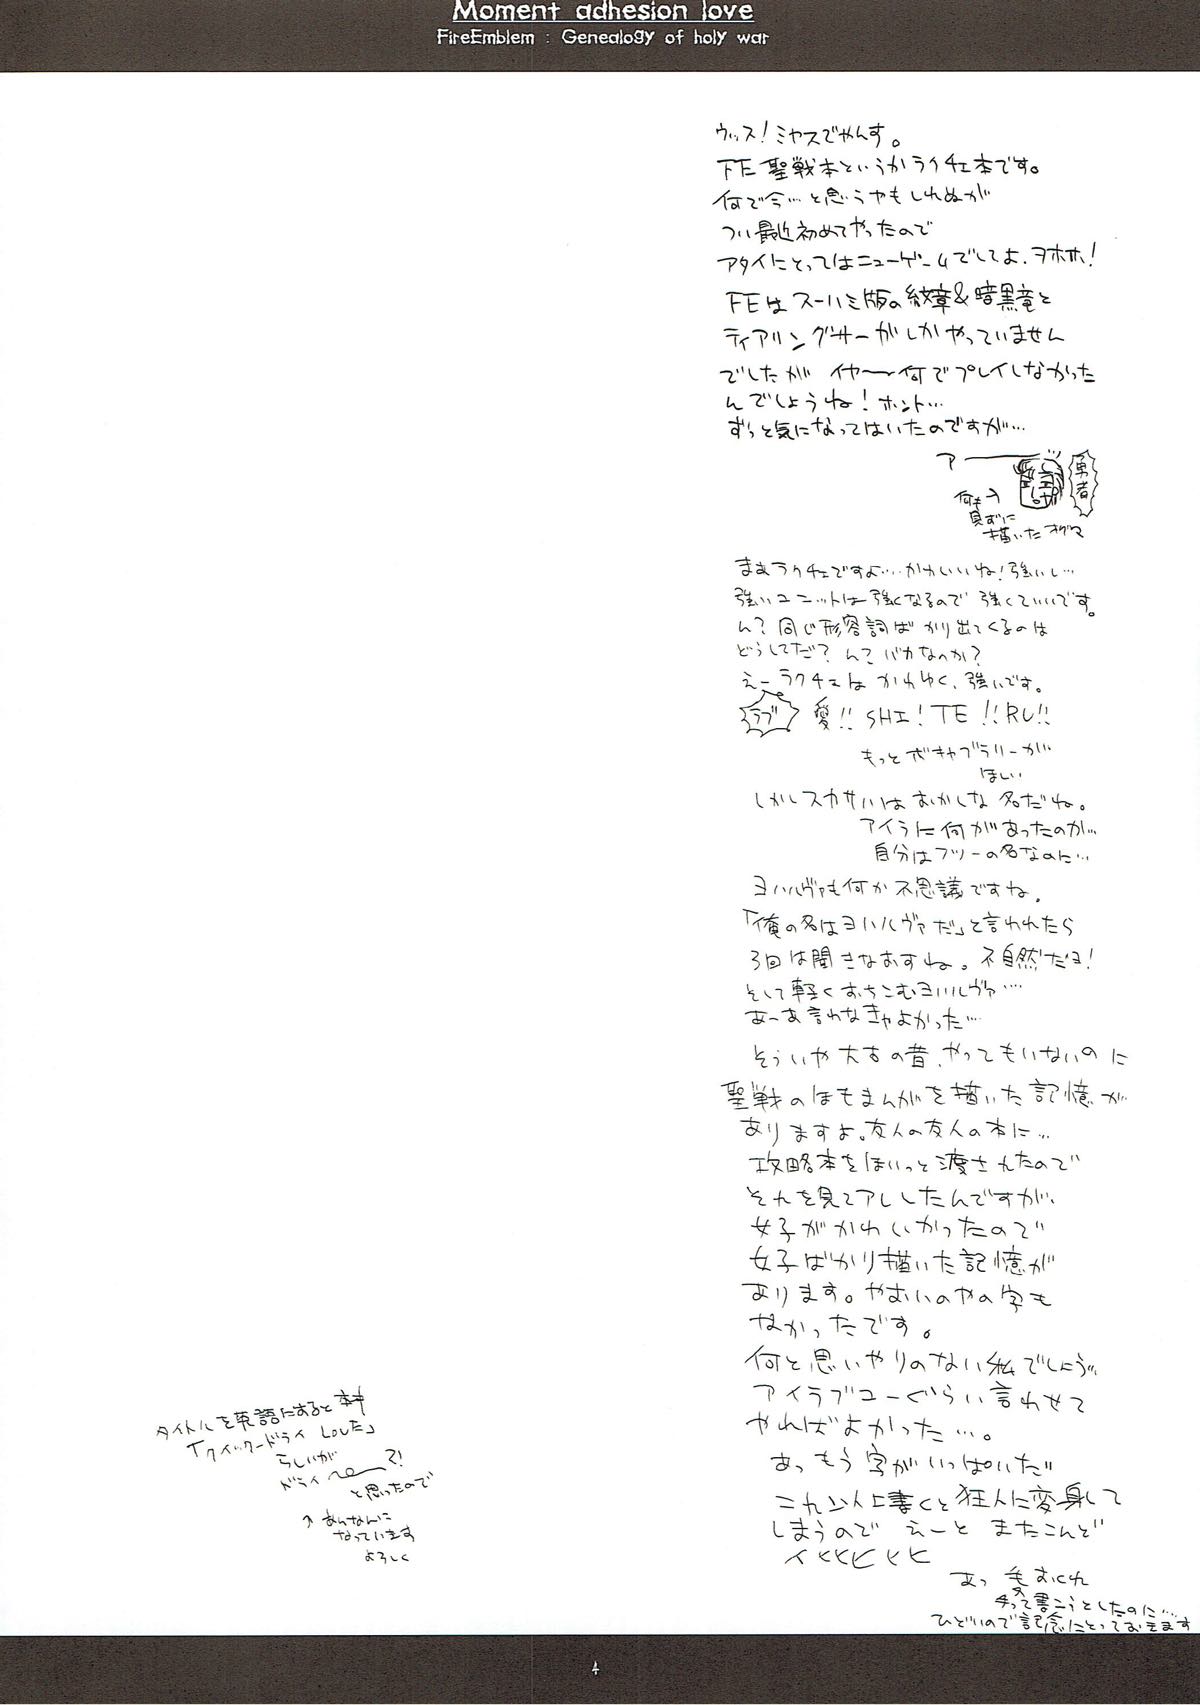 Moment adhesion love
FireEmblem : Genealogy of holy war
ウッス!ミヤスでやんす。
FE聖戦本というかラクチェ本です。
何で今…と思うやもしれぬが
つい最近初めてやったので
アタイにとってはニューゲームでしてよ、ヲホホ!
FEはスーハミ版の紋章&暗黒竜と
ティアリングサーガしかやっていません
でしたが イヤ〜何でプレイしなかった
んでしょうね!ホント…
ずっと気になってはいたのですが…
アー
勇者
何も
見ずに
描いたオグマ
まあラクチェですよ…かわいいね!強いし…
強いユニットは強くなるので強くていいです。
ん?同じ形容詞ばかり出てくるのは
どうしてだ?ん？バカなのか?
えーラクチェはかわゆく、強いです。
ラブ
愛!!SHI!TE!!RU!!
もっとボキャブラリーが
ほしい
しかしスカサハはおかしな名だね。
アイラに何があったのか…
自分はフツーの名なのに…
ヨハルヴァも何か不思議ですね。
「俺の名はヨハルヴァだ」と言われたら
3回は聞きなおすね。不自然だヨ!
そして軽くおちこむヨハルヴァ…
あーあ言わなきゃよかった…
そういや大古の昔、やってもいないのに
聖戦のほもまんがを描いた記憶が
ありますよ。友人の友人の本に…
攻略本をほいっと渡されたので
それを見てアレしたんですが、
女子がかわいかったので
女子ばかり描いた記憶が
あります。やおいのやの字も
なかったです。
何と思いやりのない私でしょう…
アイラブユーぐらい言わせて
やればよかった…。
あっもう字がいっぱいだ
これ以上書くと狂人に変身して
しまうので えーと またこんど
イヒヒヒヒヒ
あっ 愛おくれ
って書こうとしたのに…
ひどいので記念にとっておきます
タイトルを英語にすると
「クイックードライ Loveだ」
らしいが
ドライ〜?!
と思ったので
↑あんなんに
なっています
よろしく
4